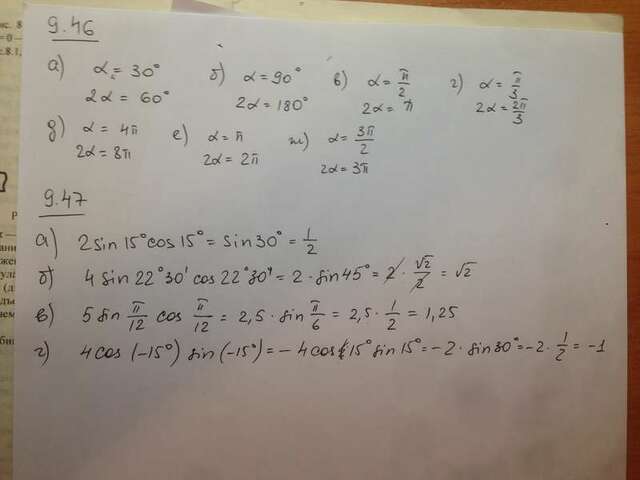 9.46
а) α = 30° б) α = 90° в) α = π/2 г) α = π/3
2α = 60° 2α = 180° 2α = π 2α = 2π/3
д) α = 4π е) α = π ж) α = 3π/2
2α = 8π 2α = 2π 2α = 3π
9.47
а) 2 sin 15° cos 15° = sin 30° = 1/2
б) 4 sin 22°30' cos 22°30' = 2 · sin 45° = 2 · √2/2 = √2
в) 5 sin π/12 cos π/12 = 2,5 · sin π/6 = 2,5 · 1/2 = 1,25
г) 4 cos (-15°) sin (-15°) = - 4 cos 15° sin 15° = -2 · sin 30° = -2 · 1/2 = -1